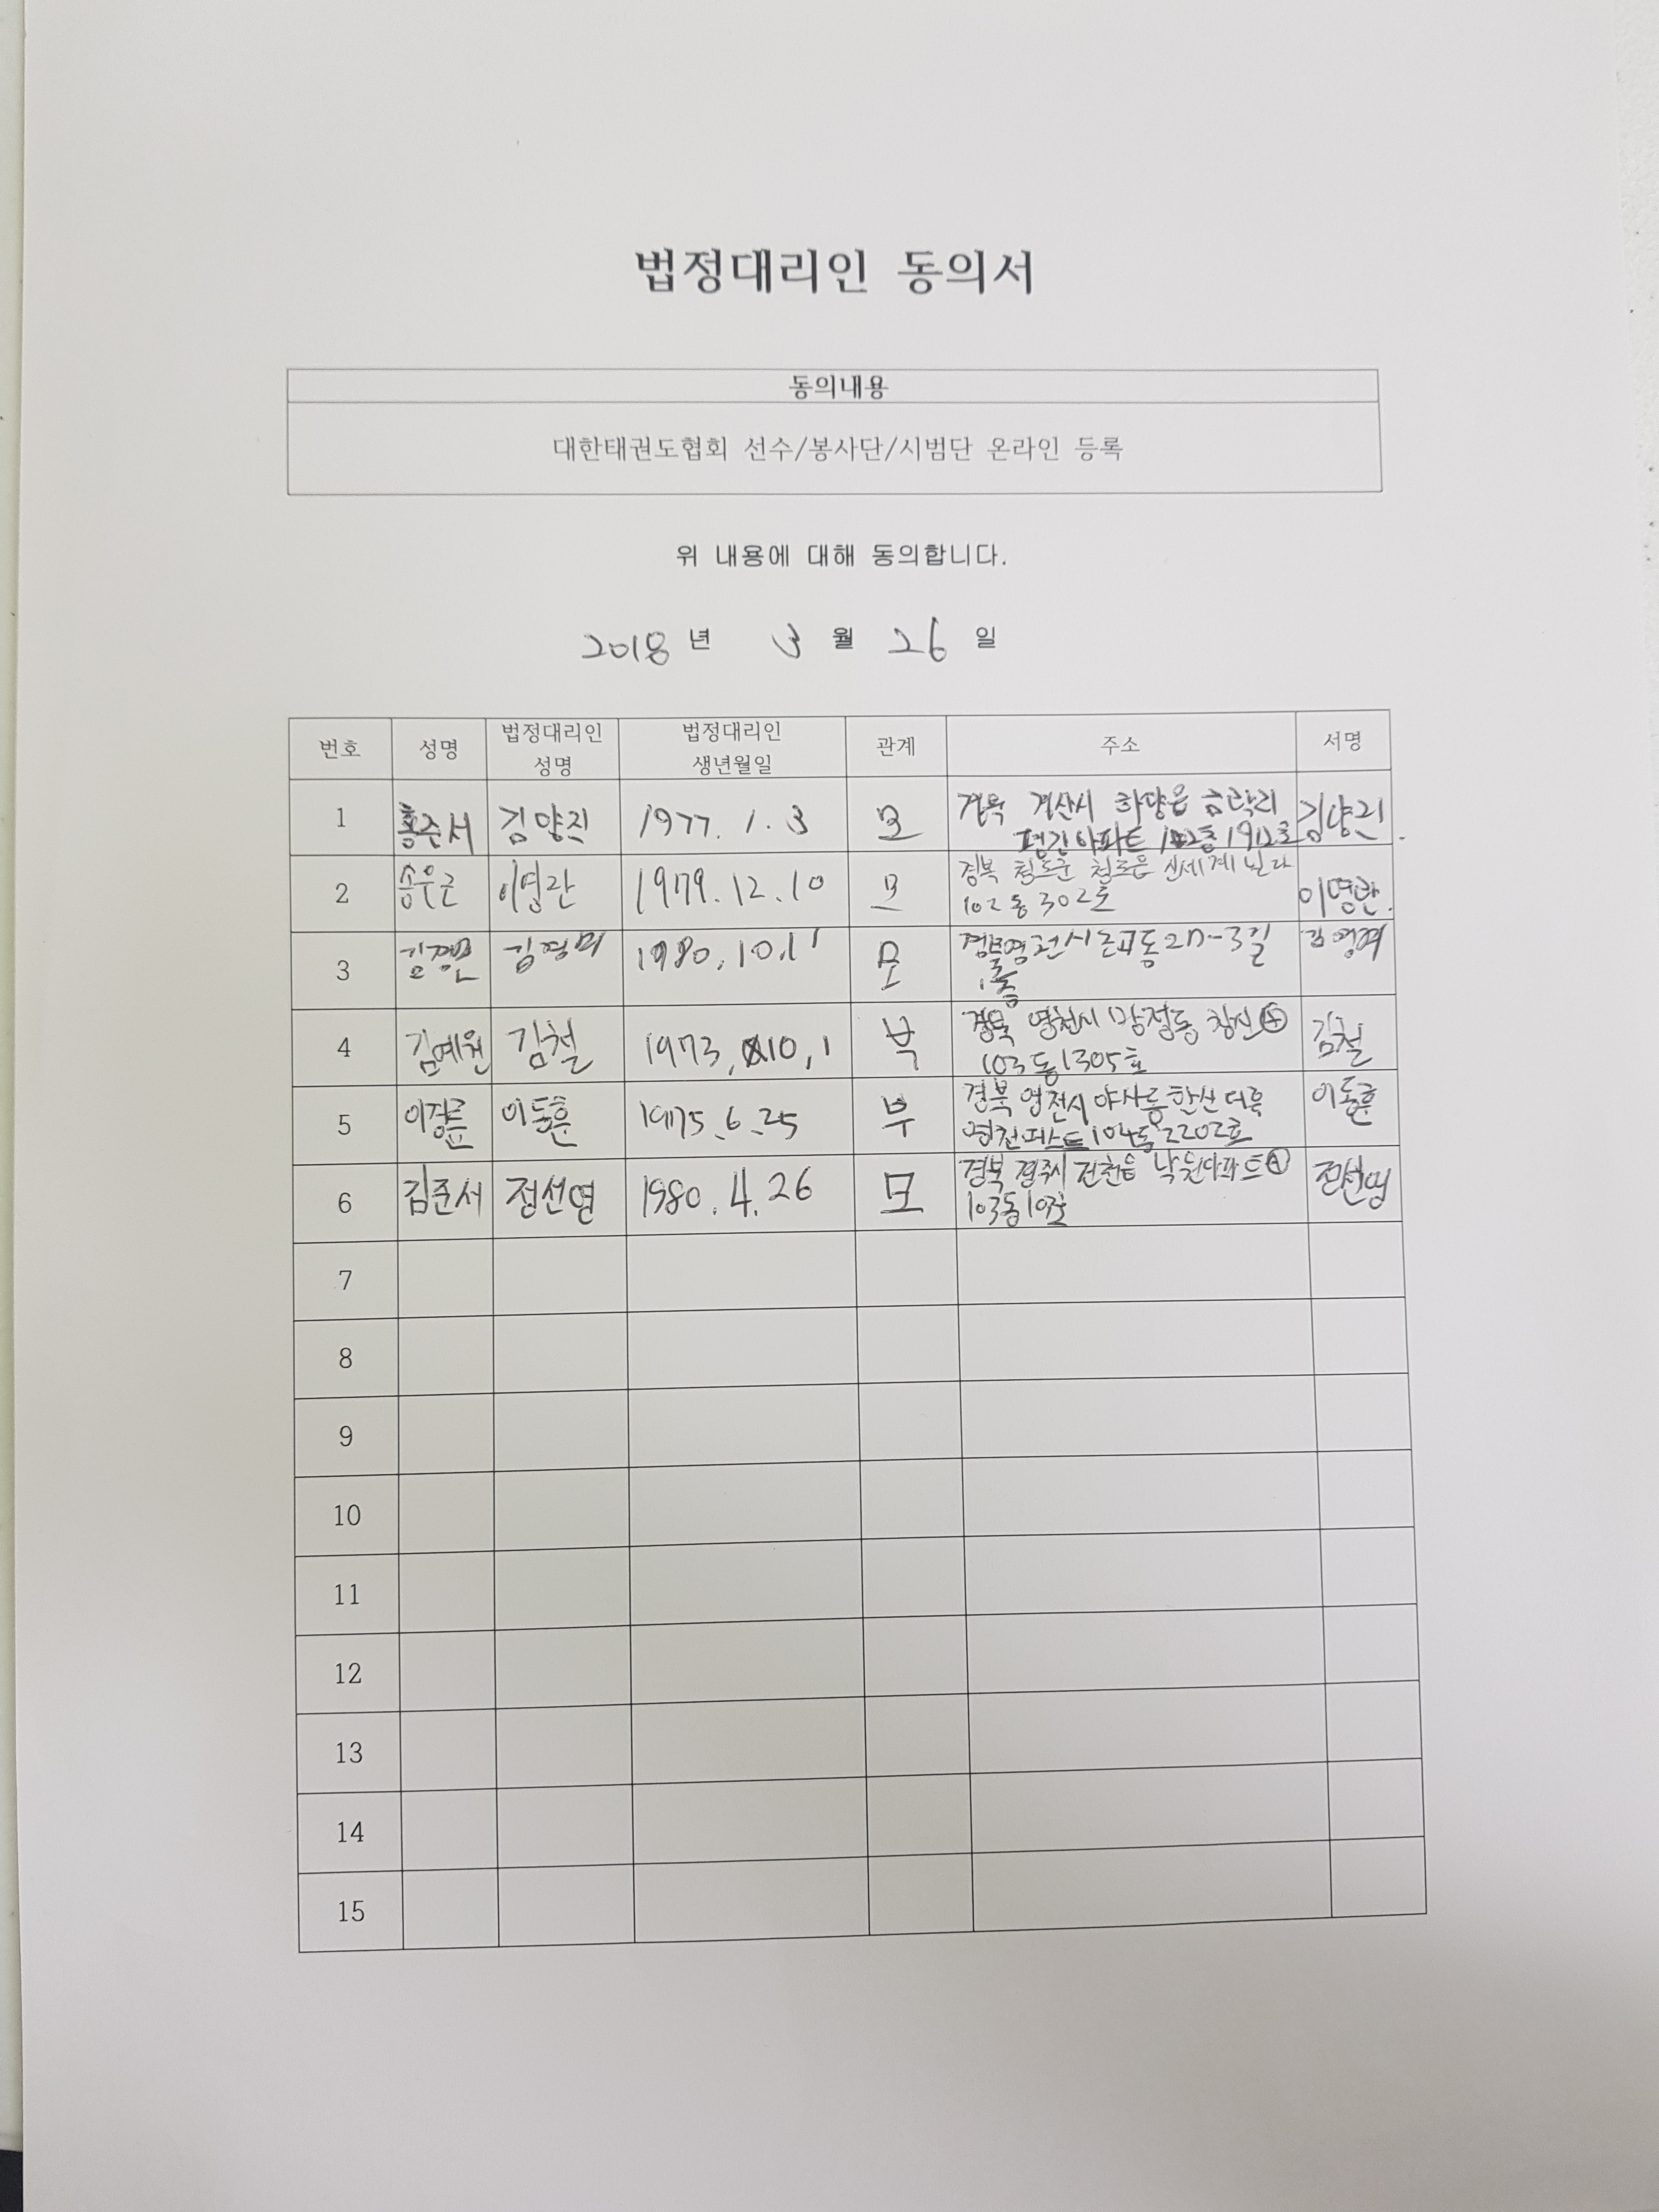 법정대리인 동의서
동의내용
대한태권도협회 선수/봉사단/시범단 온라인 등록
위 내용에 대해 동의합니다.
2018 년 3 월 26 일
번호 성명 법정대리인 성명 법정대리인 생년월일 관계 주소 서명
1 홍준서 김양진 1977. 1. 3 모 경북 경산시 하양읍 금락리
아파트 1912호
2 송우근 이영란 1979. 12. 10 모 경북 청도군 청도읍 신세계빌라
102동 302호 이영란.
3 김영미 1980. 10. 11 모 경북영천시
4 김예원 김철 1973, 10, 1 부 경북 영천시 망정동 창신
103동 1305호 김철
5 이동훈 1975. 6. 25 부 경북 영천시 야사동 한신더휴
영천퍼스트 104동 2202호 이동훈
6 김준서 정선영 1980. 4. 26 모 경북 경주시 건천읍 낙원아파트
103동 정선영
7
8
9
10
11
12
13
14
15